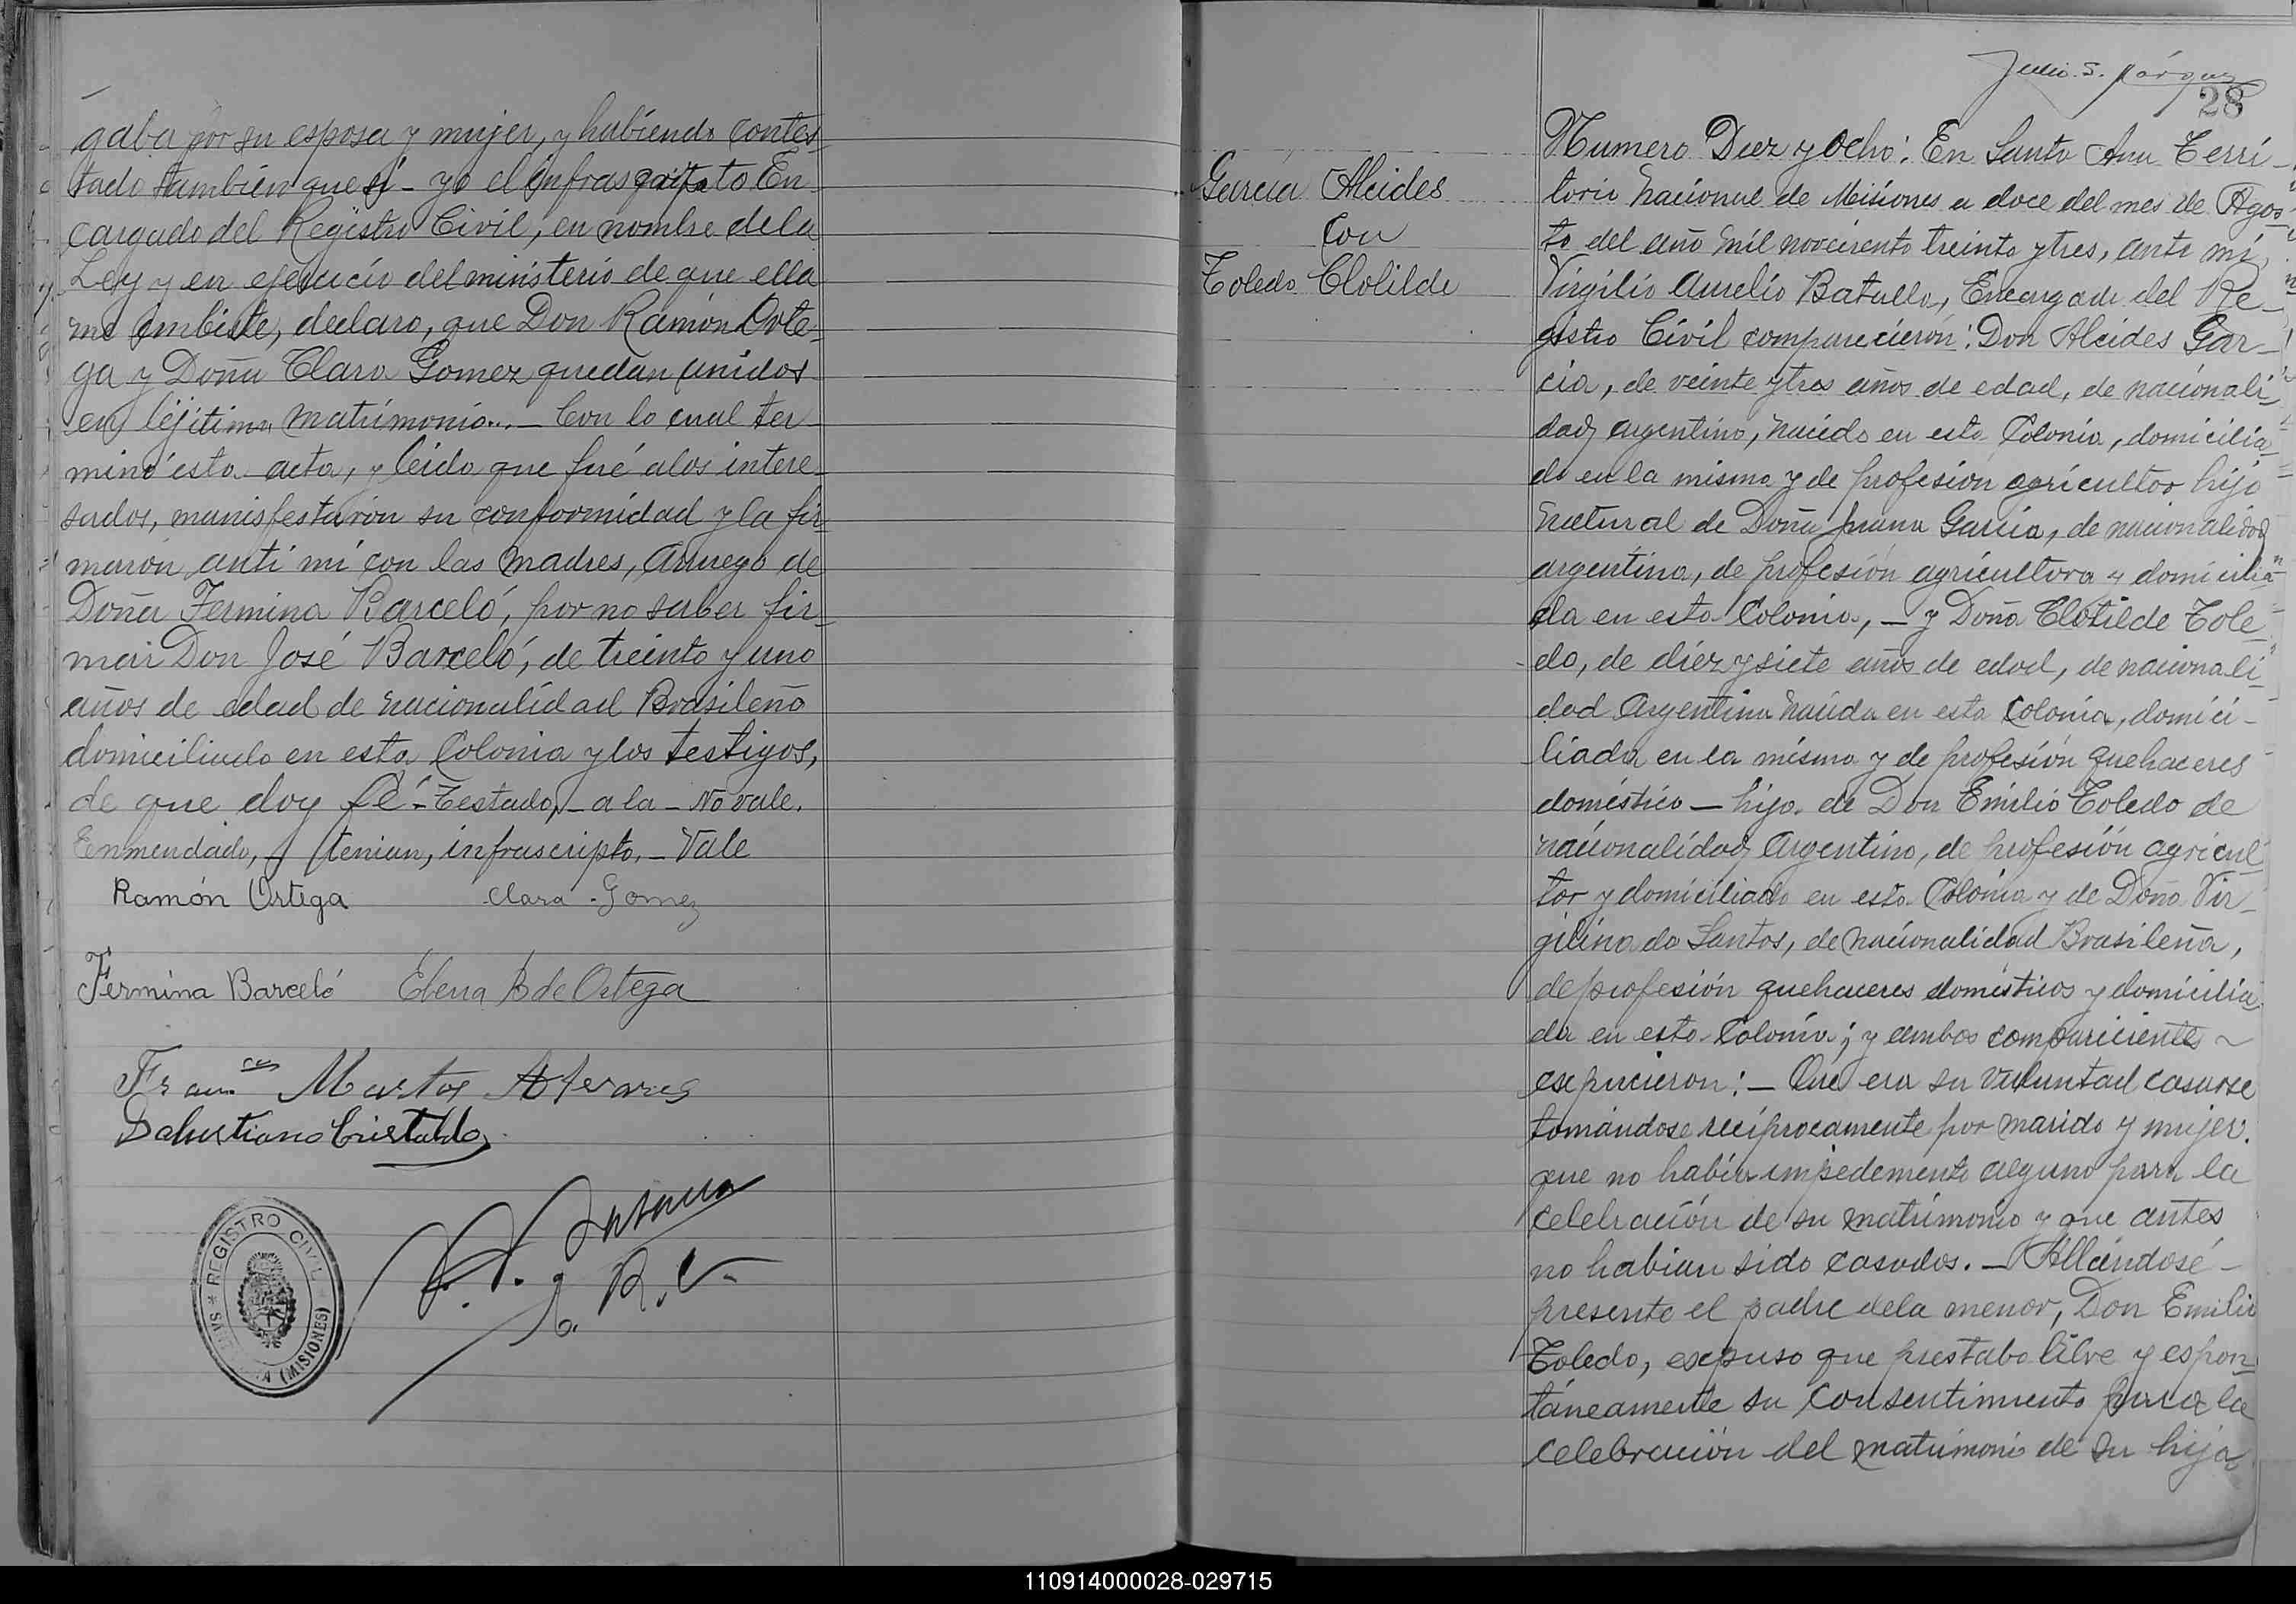 gaba por su esposa y mujer, y habiendo contes-
tado tambien que sí - yo el infrascripto En-
cargado del Registro Civil, en nombre de la
Ley y en ejercicio del ministerio de que ella
me embiste, declaro, que Don Ramón Orte-
ga y Doña Clara Gomez quedan unidos
en léjitimo matrimonio... - Con lo cual ter-
minó esta acta, y leida que fué a los intere-
sados, manisfestarón su conformidad y la fir-
marón anti mí con las madres, a ruego de
Doña Fermina Barceló, por no saber fir-
mar Don José Barceló, de treinta y uno
años de edad de nacionalidad Brasileño
domiciliado en esta Colonia y los testigos,
de que doy fé - Testado, - a la - No vale.
Enmendado, - tenian, infrascripto. - Vale
Ramón Ortega Clara Gomez
Fermina Barceló Elena B de Ortega
Franco Martos Alvares
Salustiano Cristaldo
E. R. C.
REGISTRO CIVIL
(MISIONES)
28
García Alcides
Con
Toledo Clotilde
Numero Diez y Ocho: En Santa Ana Terri-
torio Nacional de Misiones a doce del mes de Agos-
to del año mil novecirento treinta y tres, ante mí,
Virgilio Aurelio Batalla, Encargado del Re-
gistro Civil comparecierón: Don Alcides Gar-
cia, de veinte y tres años de edad, de nacionali-
dad argentino, nacido en esta Colonia, domicilia-
do en la misma y de profesión agricultor hijo
natural de Doña Juana García, de nacionalidad
argentina, de profesión agricultora y domicilia-
da en esta Colonia, - y Doña Clotilde Tole-
do, de diez y siete años de edad, de nacionali-
dad Argentina nacida en esta Colonia, domici-
liada en la misma y de profesión quehaceres
doméstico - hija de Don Emilio Toledo de
nacionalidad Argentino, de profesión agricul-
tor y domiciliado en esta Colonia y de Doña Vir-
gilina do Santos, de nacionalidad Brasileña,
de profesión quehaceres domésticos y domicilia-
da en esta Colonia; y ambos compariciente
expucieron: - Que era su voluntad casarse
tomándose recíprocamente por marido y mujer.
que no había impedemento alguno para la
celebración de su matrimonio y que antes
no habian sido casados. - Allándosé -
presente el padre de la menor, Don Emilio
Toledo, expuso que prestaba libre y espon-
táneamente su consentimiento para la
celebración del matrimonio de su hija
110914000028-029715